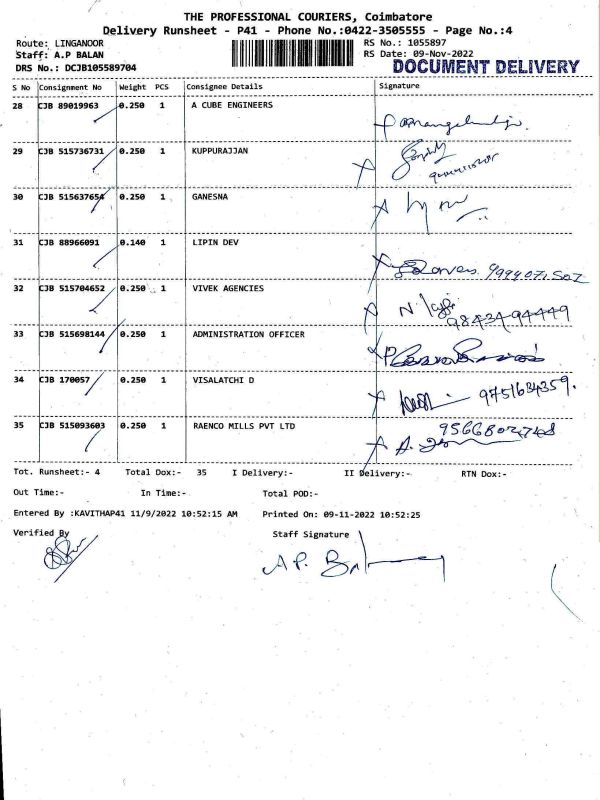 THE PROFESSIONAL COURIERS, Coimbatore
Delivery Runsheet - P41 - Phone No.:0422-3505555 - Page No.:4
Route: LINGANOOR
RS No.: 1055897
Staff: A.P BALAN
RS Date: 09-Nov-2022
DRS No.: DCJB105589704
DOCUMENT DELIVERY
S No Consignment No Weight PCS Consignee Details Signature
28 CJB 89019963 0.250 1 A CUBE ENGINEERS
29 CJB 515736731 0.250 1 KUPPURAJJAN
30 CJB 515637654 0.250 1 GANESNA
31 CJB 88966091 0.140 1 LIPIN DEV
32 CJB 515704652 0.250 1 VIVEK AGENCIES
9843494449
33 CJB 515698144 0.250 1 ADMINISTRATION OFFICER
34 CJB 170057 0.250 1 VISALATCHI D
9751634359.
35 CJB 515093603 0.250 1 RAENCO MILLS PVT LTD
Tot. Runsheet:- 4 Total Dox:- 35 I Delivery:- II Delivery:- RTN Dox:-
Out Time:- In Time:- Total POD:-
Entered By :KAVITHAP41 11/9/2022 10:52:15 AM Printed On: 09-11-2022 10:52:25
Verified By
Staff Signature
A.P. Balan